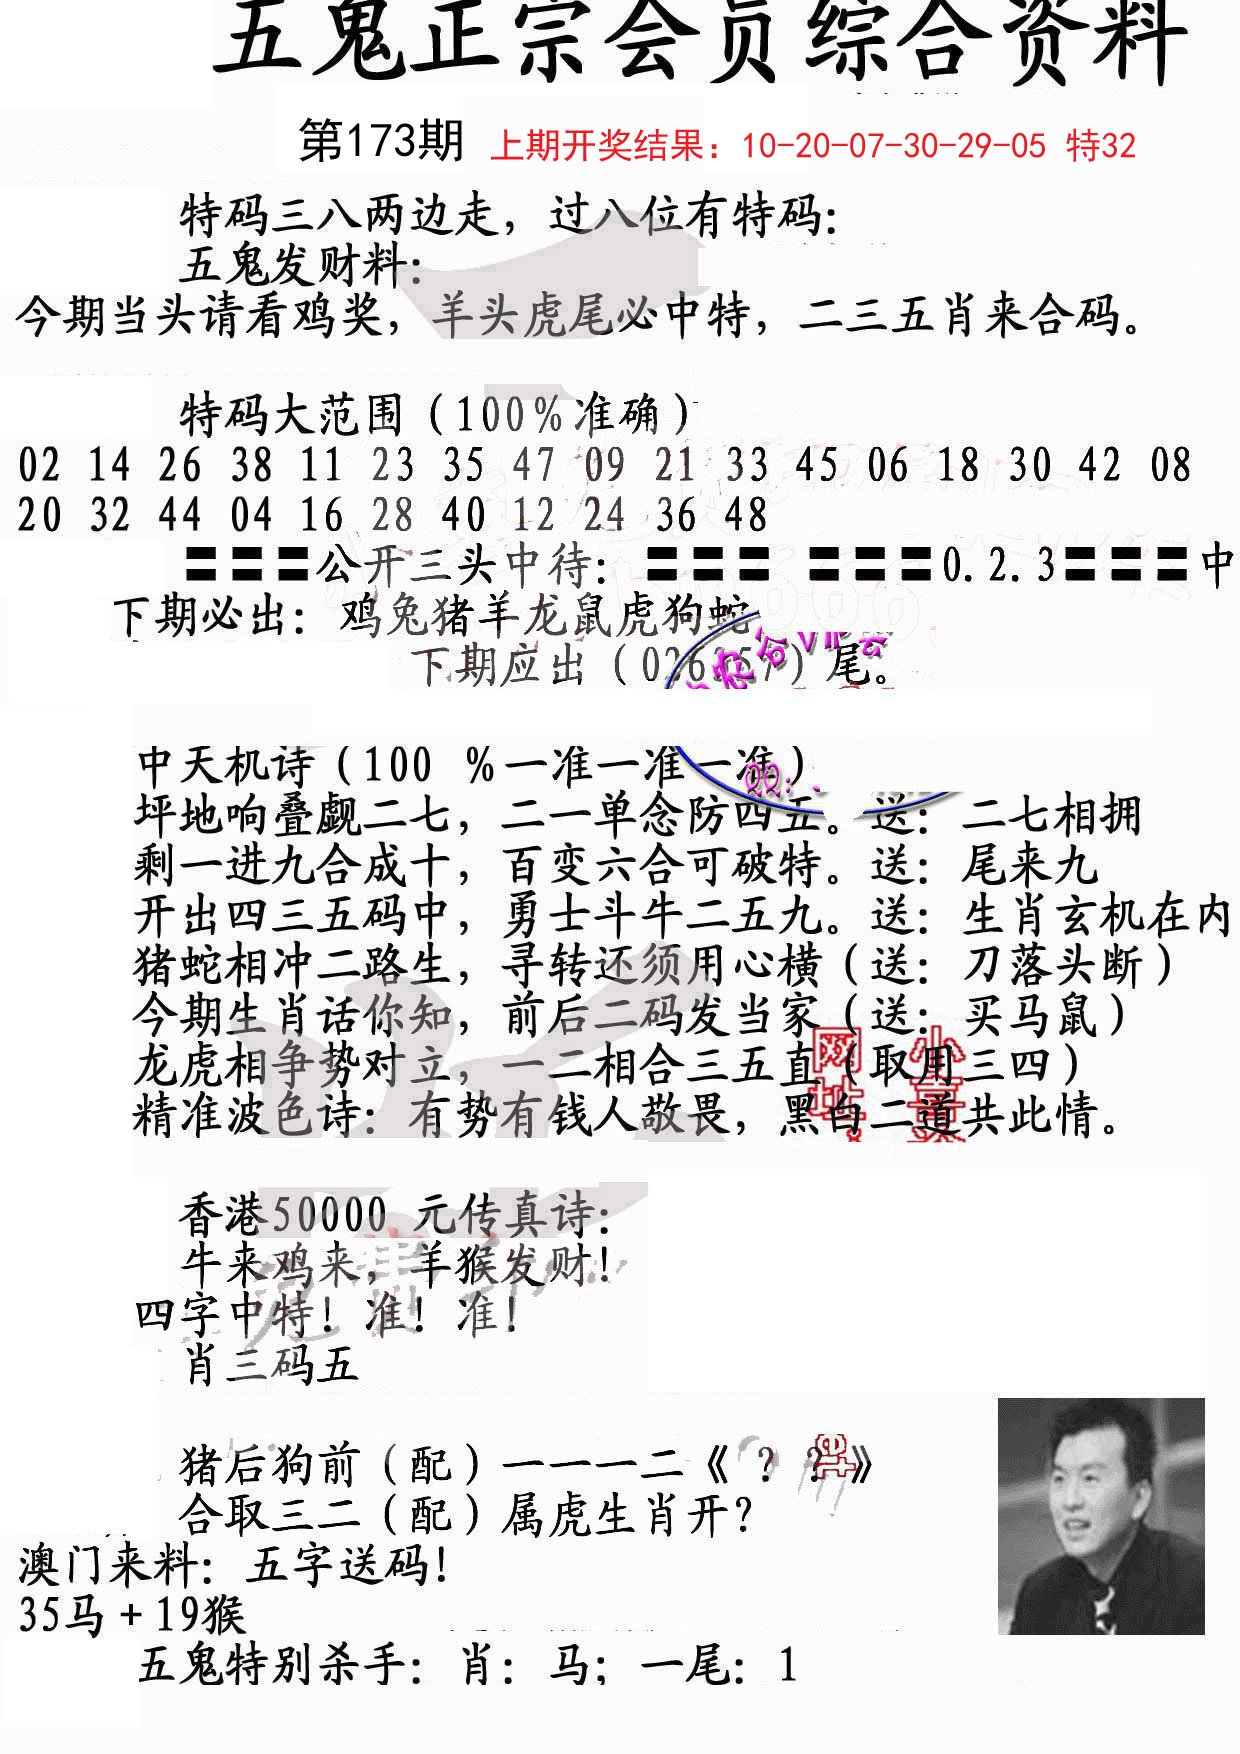 五鬼正宗会员综合资料
第173期 上期开奖结果：10-20-07-30-29-05 特32
特码三八两边走，过八位有特码：
五鬼发财料：
今期当头请看鸡奖，羊头虎尾必中特，二三五肖来合码。
特码大范围（100%准确）
02 14 26 38 11 23 35 47 09 21 33 45 06 18 30 42 08
20 32 44 04 16 28 40 12 24 36 48
〓〓〓公开三头中待：〓〓〓 〓〓〓0.2.3〓〓〓中
下期必出：鸡兔猪羊龙鼠虎狗蛇
下期应出（026357）尾。
中天机诗（100 %一准一准一准）
坪地响叠觑二七，二一单念防四五。送：二七相拥
剩一进九合成十，百变六合可破特。送：尾来九
开出四三五码中，勇士斗牛二五九。送：生肖玄机在内
猪蛇相冲二路生，寻转还须用心横（送：刀落头断）
今期生肖话你知，前后二码发当家（送：买马鼠）
龙虎相争势对立，一二相合三五直（取用三四）
精准波色诗：有势有钱人敬畏，黑白二道共此情。
香港50000 元传真诗：
牛来鸡来，羊猴发财！
四字中特！准！准！
肖三码五
猪后狗前（配）一一一二《？？》
合取三二（配）属虎生肖开？
澳门来料：五字送码！
35马+19猴
五鬼特别杀手：肖：马；一尾：1